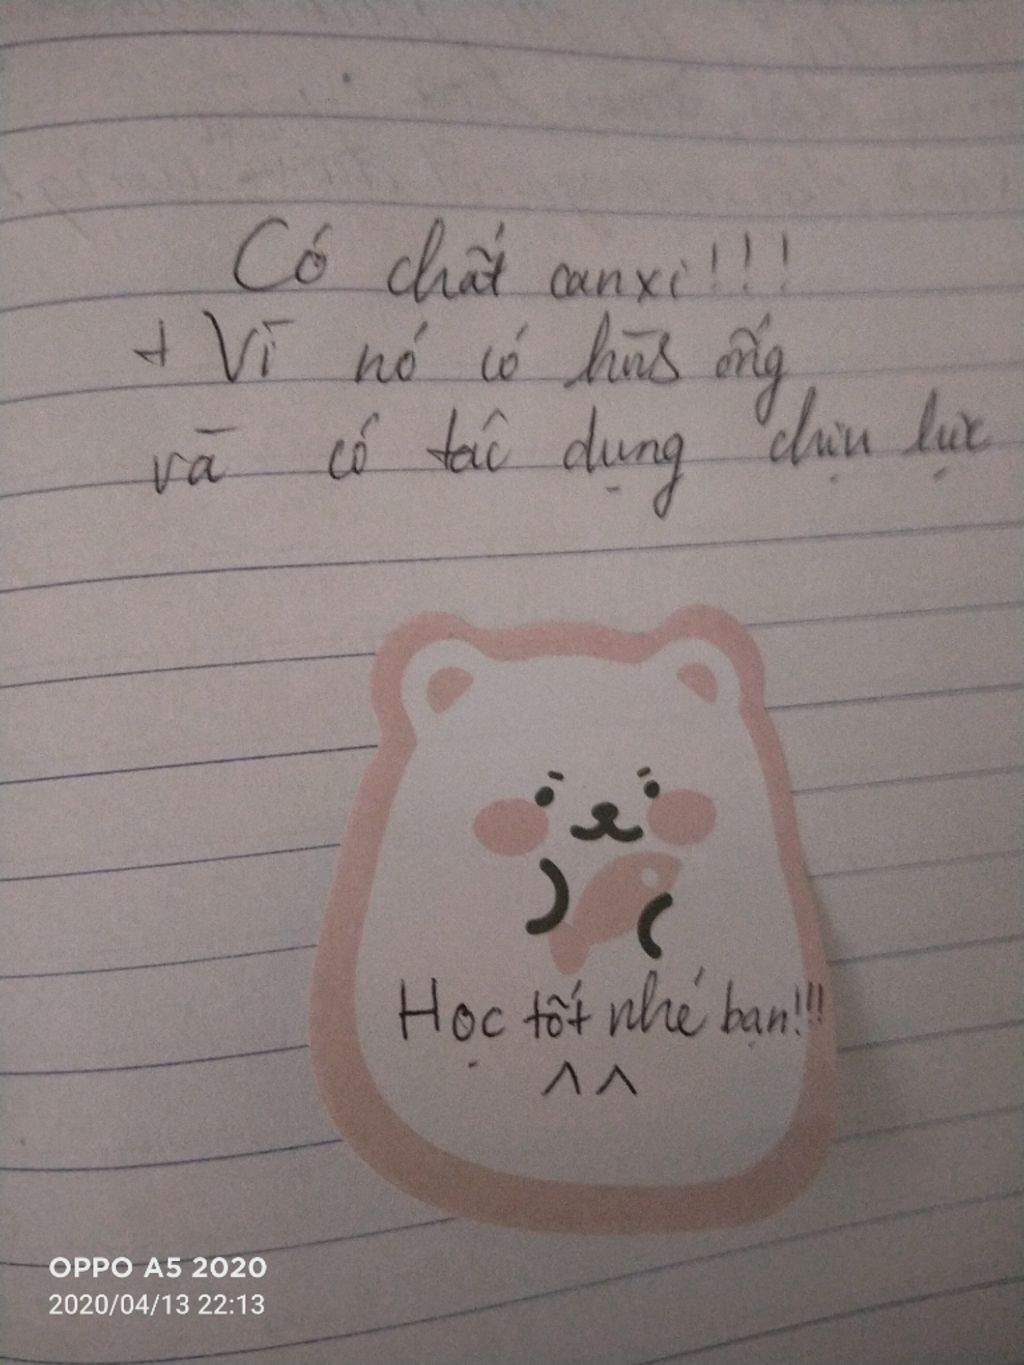 Có chất canxi!!!
+ Vì nó có hình ống
và có tác dụng chịu lực
Học tốt nhé bạn!!!
^^
OPPO A5 2020
2020/04/13 22:13